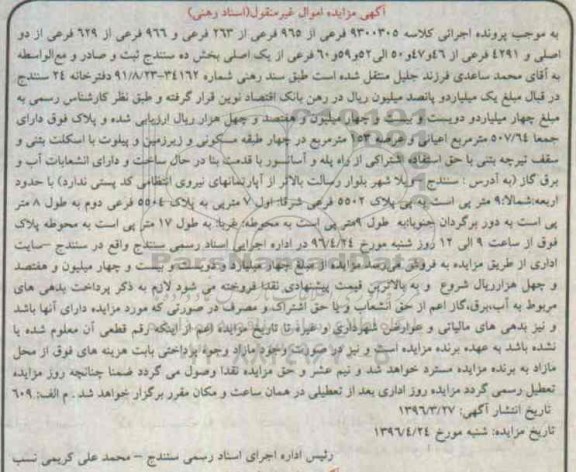 آگهی مزایده اموال غیرمنقول(اسناد رهنی)
به موجب پرونده اجرائی کلاسه ۹۳۰۰۳۰۵ فرعی از ۹۶۵ فرعی از ۲۶۳ فرعی و ۹۶۶ فرعی از ۶۲۹ فرعی از دو
اصلی و ۴۲۹۱ فرعی از ۴۶و۴۷و۵۰ الی۵۲و۵۹و۶۰ فرعی از یک اصلی بخش ده سنندج ثبت و صادر و مع‌الواسطه
به آقای محمد ساعدی فرزند جلیل منتقل شده است طبق سند رهنی شماره ۳۴۱۶۲-۹۱/۸/۲۳ دفترخانه ۲۴ سنندج
در قبال مبلغ یک میلیاردو پانصد میلیون ریال در رهن بانک اقتصاد نوین قرار گرفته و طبق نظر کارشناس رسمی به
مبلغ چهار میلیاردو دویست و بیست و چهار میلیون و هفتصد و چهل هزار ریال ارزیابی شده و پلاک فوق دارای
جمعا ۵۰۷/۶۴ مترمربع اعیانی و عرصه ۱۵۳ مترمربع در چهار طبقه مسکونی و زیرزمین و پیلوت با اسکلت بتنی و
سقف تیرچه بتنی با حق استفاده اشتراکی از راه پله و آسانسور با قدمت بنا در حال ساخت و دارای انشعابات آب و
برق گاز (به آدرس : سنندج –ویلا شهر بلوار رسالت بالاتر از آپارتمانهای نیروی انتظامی کد پستی ندارد) با حدود
اربعه:شمالا:۹ متر پی است به پی پلاک ۵۵۰۲ فرعی شرقا: اول ۷ متر پی به پلاک ۵۵۰۴ فرعی دوم به طول ۸ متر
پی است به دور برگردان جنوبا:به طول ۹متر پی است به محوطه: غربا: به طول ۱۷ متر پی است به محوطه پلاک
فوق از ساعت ۹ الی ۱۲ روز شنبه مورخ ۹۶/۴/۲۴ در اداره اجرایی اسناد رسمی سنندج واقع در سنندج –سایت
اداری از طریق مزایده به فروش می‌رسد مزایده از مبلغ چهار میلیارد و دویست و بیست و چهار میلیون و هفتصد
و چهل هزارریال شروع و به بالاترین قیمت پیشنهادی نقدا فروخته می شود لازم به ذکر پرداخت بدهی های
مربوط به آب،برق،گاز اعم از حق انشعاب و یا حق اشتراک و مصرف در صورتی که مورد مزایده دارای آنها باشد
و نیز بدهی های مالیاتی و عوارض شهرداری و غیره تا تاریخ مزایده اعم از اینکه رقم قطعی آن معلوم شده یا
نشده باشد به عهده برنده مزایده است و نیز در صورت وجود مازاد وجوه پرداختی بابت هزینه های فوق از محل
مازاد به برنده مزایده مسترد خواهد شد و نیم عشر و حق مزایده نقدا وصول می گردد ضمنا چنانچه روز مزایده
تعطیل رسمی گردد مزایده روز اداری بعد از تعطیلی در همان ساعت و مکان مقرر برگزار خواهد شد . م الف: ۶۰۹
تاریخ انتشار آگهی: ۱۳۹۶/۳/۲۷
تاریخ مزایده: شنبه مورخ ۱۳۹۶/۴/۲۴
رئیس اداره اجرای اسناد رسمی سنندج – محمد علی کریمی نسب
ParsNamadData